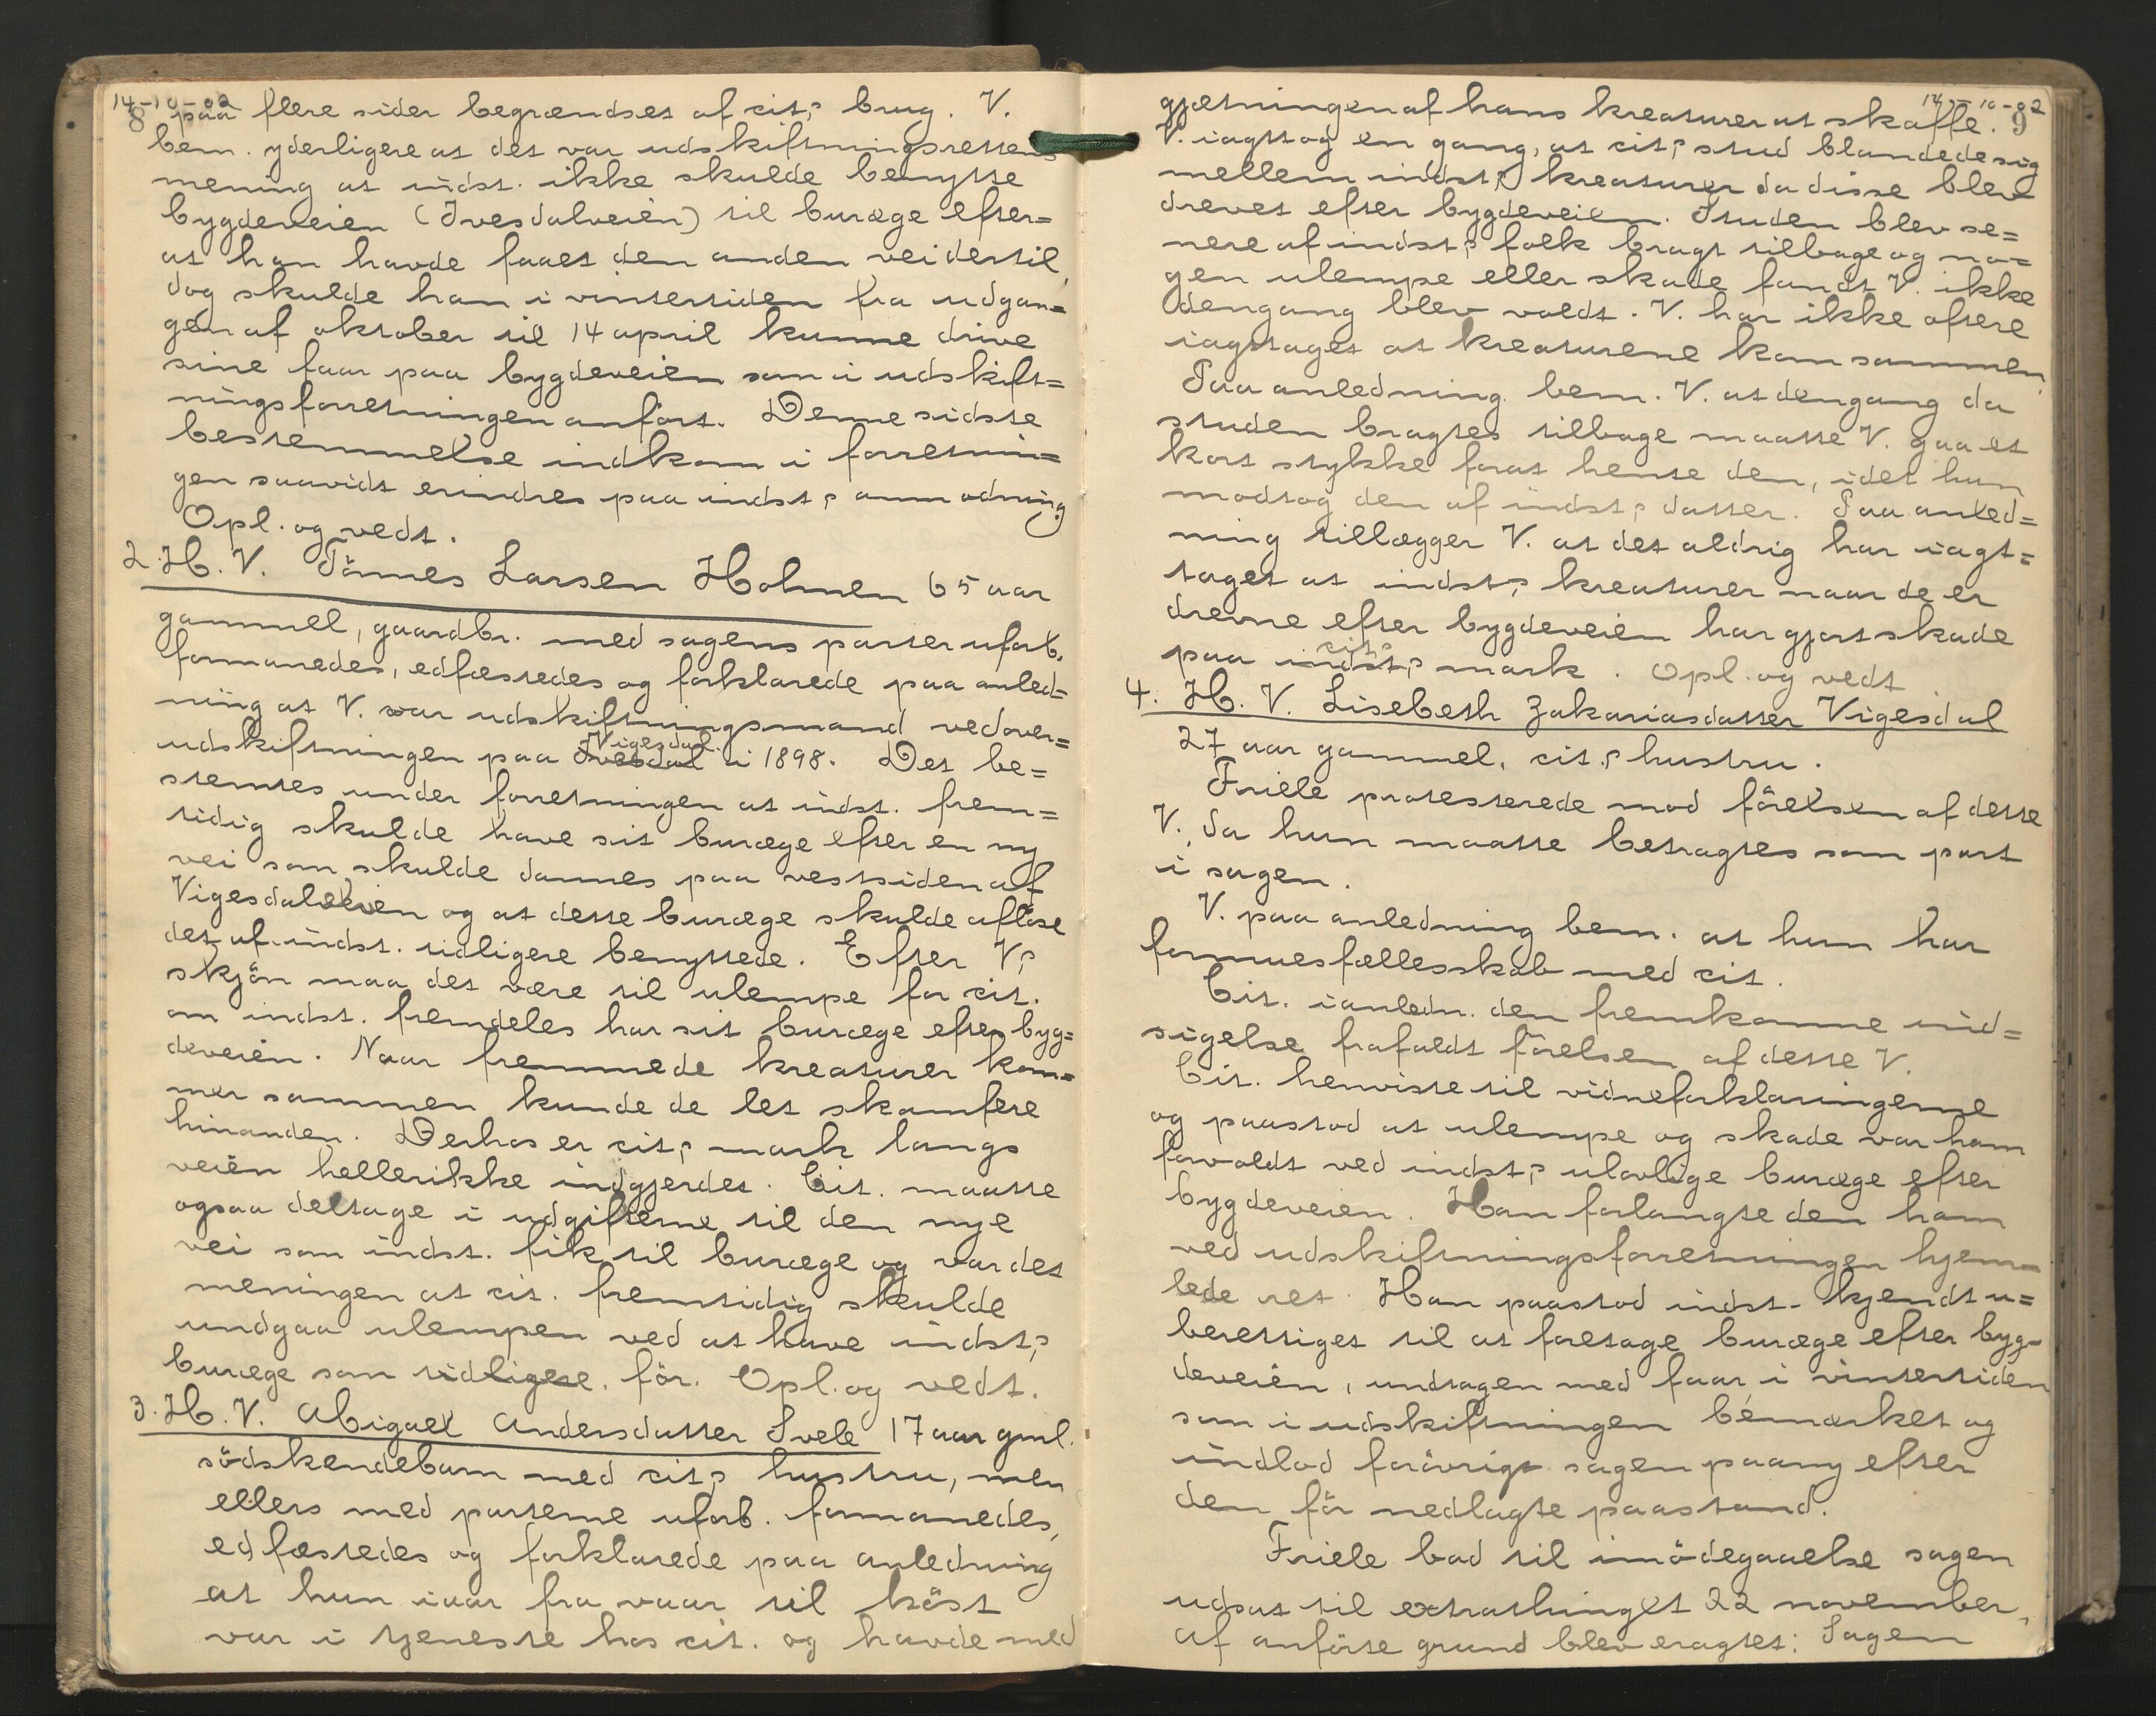 14-10-02
8 paa flere sider begrændses af cit.s brug. V.
bem. yderligere at det var udskiftningsrettens
mening at indst. ikke skulde benytte
bygdeveien (Ivesdalveien) til buræge efter=
at han havde faaet den anden vei dertil,
dog skulde han i vintertiden fra udgan=
gen af oktober til 14 april kunne drive
sine faar paa bygdeveien som i udskift=
ningsforretningen anført. Denne sidste
bestemmelse indkom i forretnin=
gen saavidt erindres paa indst.s anmodning
Opl. og vedt.
2. H. V. Tönnes Larsen Holmen 65 aar
gammel, gaardbr. med sagens parter uforb.
formanedes, edfæstedes og forklarede paa anled=
ning at V. var udskiftningsmand ved over=
Vigesdal
udskiftningen paa Ivesdal i 1898. Det be=
stemtes under forretningen at indst. frem=
tidig skulde have sit buræge efter en ny
vei som skulde dannes paa vestsiden af
Vigesdalelven og at dette buræge skulde aflöse
det af indst. tidligere benyttede. Efter V.s
skjön maa det være til ulempe for cit.
om indst. fremdeles har sit buræge efter byg=
deveien. Naar fremmede kreaturer kom=
mer sammen kunde de let skamfere
hinanden. Derhos er cit.s mark langs
veien hellerikke indgjerdet. Cit. maatte
ogsaa deltage i udgifterne til den nye
vei som indst. fik til buræge og var det
meningen at cit. fremtidig skulde
undgaa ulempen ved at have indst.s
buræge som tidligere. för. Opl. og vedt.
3. H. V. Abigael Andersdatter Svele 17 aar gml.
södskendebarn med cit.s hustru, men
ellers med parterne uforb. formanedes,
edfæstedes og forklarede paa anledning
at hun iaar fra vaar til höst
var i tjeneste hos cit. og havde med
14-10-02
gjætningen af hans kreaturer at skaffe. 9
V. iagttog en gang, at cit.s stud blandede sig
mellem indst.s kreaturer da disse blev
drevet efter bygdeveien. Studen blev se=
nere af indst.s folk bragt tilbage og no=
gen ulempe eller skade fandt V. ikke
dengang blev voldt. V. har ikke oftere
iagttaget at kreaturene kom sammen.
Paa anledning bem. V. at dengang da
studen bragtes tilbage maatte V. gaa et
kort stykke forat hente den, idet hun
modtog den af indst.s datter. Paa anled=
ning tillægger V. at det aldrig har iagt=
taget at indst.s kreaturer naar de er
drevne efter bygdeveien har gjort skade
cit.s
paa indst.s mark. Opl. og vedt
4. H. V. Lisebeth Zakariasdatter Vigesdal
27 aar gammel, cit.s hustru.
Friele protesterede mod förelsen af dette
V. da hun maatte betragtes som part
i sagen.
V. paa anledning bem. at hun har
formuesfællesskab med cit.
Cit. ianledn. den fremkomne ind=
sigelse frafaldt förelsen af dette V.
Cit. henviste til vidneforklaringerne
og paastod at ulempe og skade var ham
forvoldt ved indst.s ulovlige buræge efter
bygdeveien. Han forlangte den ham
ved udskiftningsforretningen hjem=
lede ret. Han paastod indst. kjendt u=
berettiget til at foretage buræge efter byg=
deveien, undtagen med faar i vintertiden
som i udskiftningen bemærket og
indlod forövrigt sagen paany efter
den för nedlagte paastand.
Friele bad til imödegaaelse sagen
udsat til extrathinget 22 november,
Af anförte grund blev eragtet: Sagen